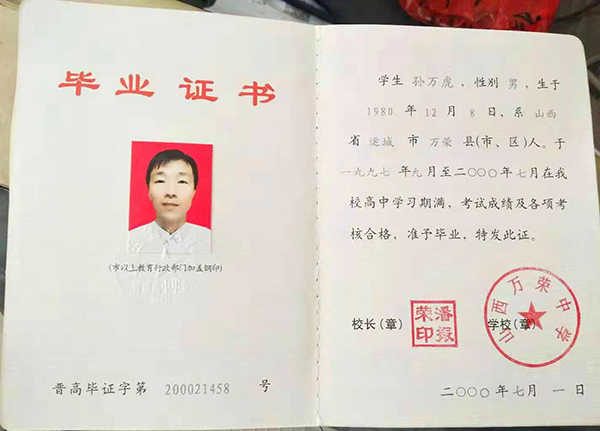 毕业证书
(市以上教育行政部门加盖钢印)
晋高毕证字第 200021458 号
学生 孙万虎，性别 男，生于
1980 年 12 月 8 日，系 山西
省 运城 市 万荣 县(市、区)人。于
一九九七年九月至二〇〇〇年七月在我
校高中学习期满，考试成绩及各项考
核合格，准予毕业，特发此证。
校长(章)
荣潘
印振
学校(章)
山西万荣中学
二〇〇〇年七月 一日